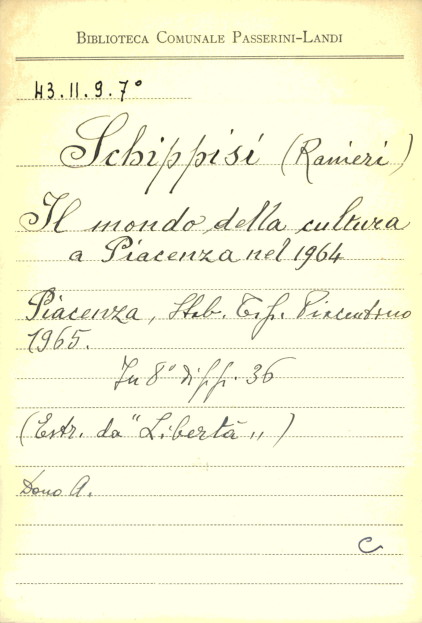 BIBLIOTECA COMUNALE PASSERINI-LANDI
43.II.9.7°
Schippisi (Ranieri)
Il mondo della cultura
a Piacenza nel 1964
Piacenza, Stab. Tip. Piacentino
1965.
In 8° di pp. 36
(Estr. da "Libertà")
Dono A.
C